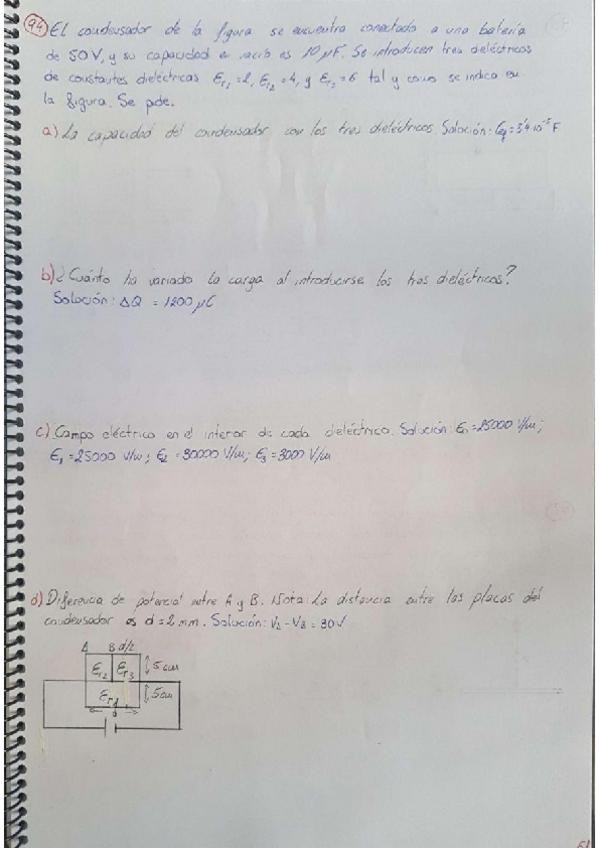 94) El condensador de la figura se encuentra conectado a una batería
de 50V, y su capacidad en vacío es 10 μF. Se introducen tres dieléctricos
de constantes dieléctricas Er₁ = 2, Er₂ = 4, y Er₃ = 6 tal y como se indica en
la figura. Se pide.
a) La capacidad del condensador con los tres dieléctricos. Solución: Ceq = 3'4·10⁻⁵ F
b) ¿Cuánto ha variado la carga al introducirse los tres dieléctricos?
Solución: ΔQ = 1200 μC
c) Campo eléctrico en el interior de cada dieléctrico. Solución: E₀ = 25000 V/m;
E₁ = 25000 V/m; E₂ = 30000 V/m; E₃ = 3000 V/m
d) Diferencia de potencial entre A y B. Nota: La distancia entre las placas del
condensador es d = 2 mm. Solución: = 30V
A B d/2
Er₂ Er₃ 5 cm
Er₁ 5 cm
d